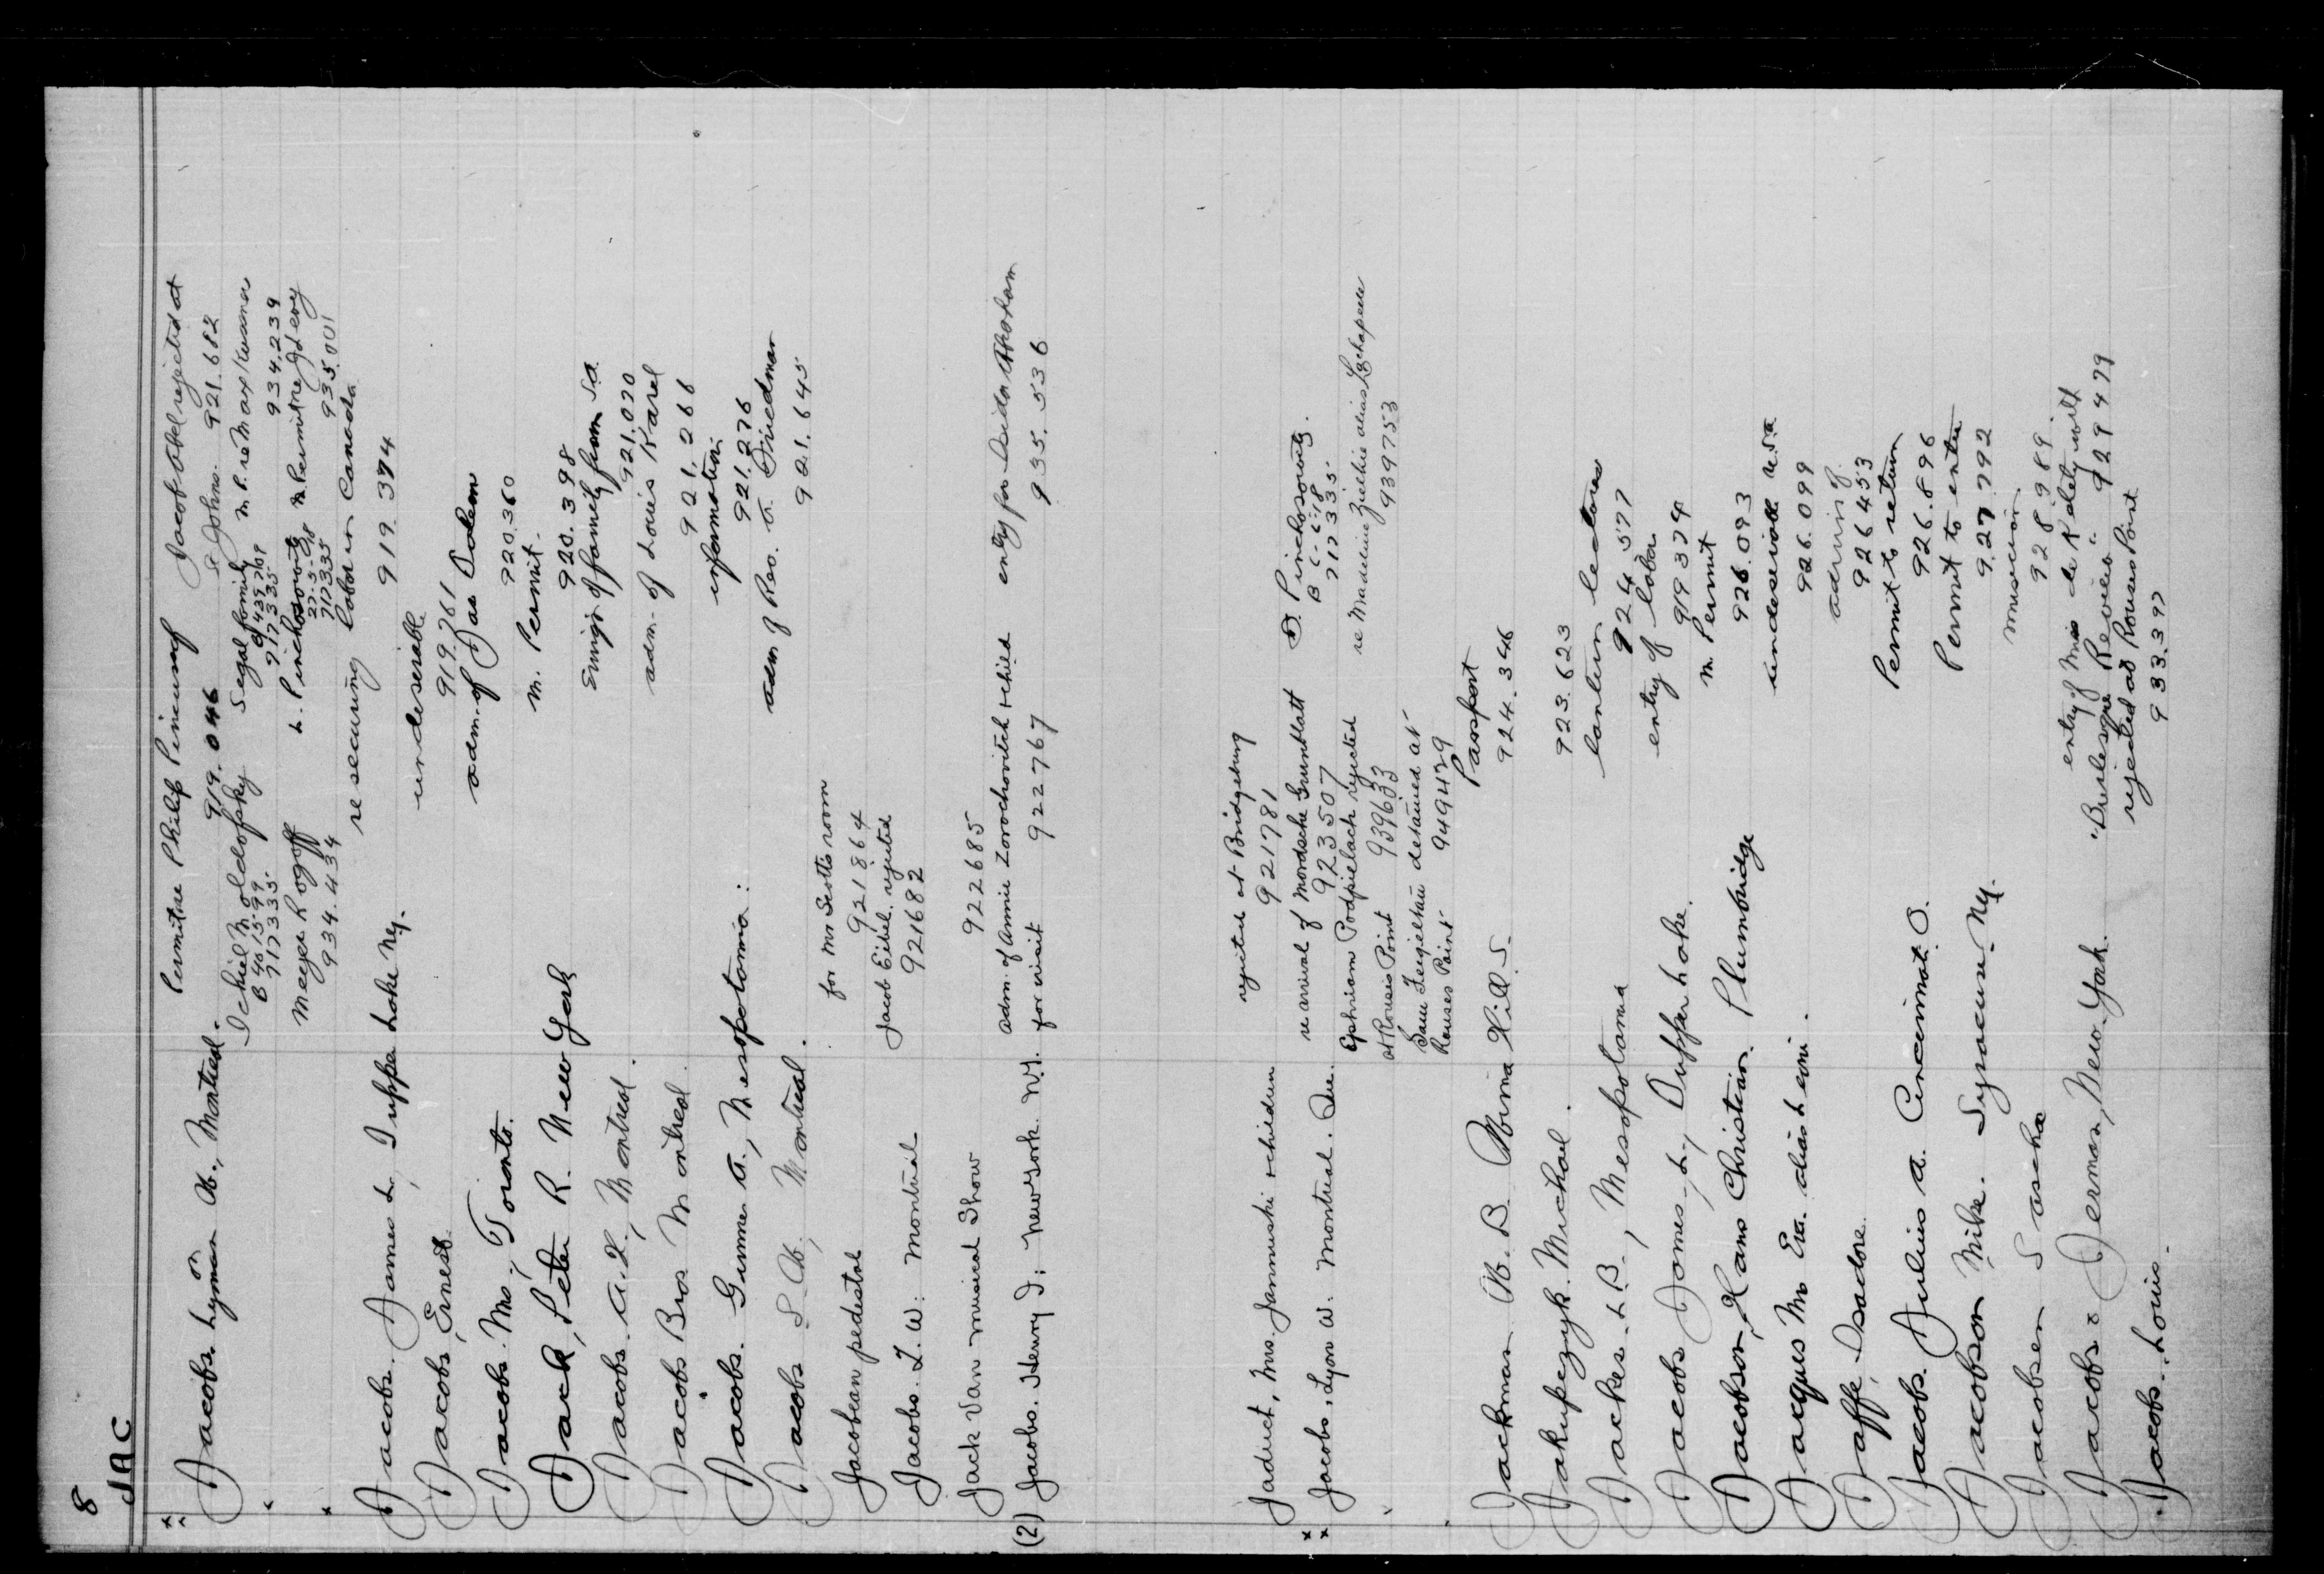 8
JAC
Jacobs Lyman or A., Montreal.
Permit re Philip Pincus
919.046
Jacob Obel rejected at
St Johns. 921.682
Ichiel Moldofsky
B 401599
717335
Segal family
717335
M.P. re Max
934.239
Meyer Rogoff
934.434
L. Pinchosowitz
27-5-
717335
M Permit re
935.001
Jacobs. James L, Tupper Lake Ny.
re securing labor in Canada
919 374
Jacobs, Ernest
undesirable
919.761
Jacobs. Mrs., Toronto.
adm. of Jas Salem
920.360
Jack, Peter R. New York
M. Permit.
920.398
Jacobs. A. H., Montreal.
Emigr of family from S.A.
921.020
Jacobs Bros Montreal.
adm. of Louis Karel
921.266
Jacobs. Gunner A., Mesopotamia:
information
921.276
Jacobs S. W., Montreal.
adm of Rev. A. Friedman
921.645
Jacobean pedestal
for Mr Scotts room
921864
Jacobs. L. W. Montreal
Jacob Eibel. rejected
921682
Jack Van musical Show
922685
(2) Jacobs. Henry I: New York N.Y.
adm. of Annie Zorochovitch & child
for visit 922767
entry for Isidor Abraham
935.536
Jaduct, Mrs. Janmuski & children
rejected at Bridgeburg
921781
Jacobs, Lyon W. Montreal. Que.
re arrival of Mordsche Grunblatt
923507
D. Pinchosowitz.
B 6-6-18
717335
Ephriam Podpielach rejected
at Rouses Point 939633
re Madeline Zielkie alias Lachapelle
939753
Sam Feigeltau detained at
Rouses Point 949439
Jackman W. B. Abina Hill S.
Passport
924.346
Jakupezyk. Michael.
923.623
Jackes. L B., Mesopotamia
lantern lectures
924.577
Jacobs James L., Tupper Lake.
entry of labor
919374
Jacobson, Hans Christian. Plumbridge
M. Permit
926.093
Jacques Mrs Eva. alias Levoi.
undesirable U.S.A.
926.099
Jaffe, Isadore.
admis of
926453
Jacobs. Julius A. Cincinnati. O.
Permit to return
926.896
Jacobson Mike. Syracuse. Ny.
Permit to enter
927.792
Jacobsen Sascha
musician.
928989.
Jacobs & Jerman, New York.
entry of Miss
"Burlesque Review" 929479
Jacobs. Louis.
rejected at Rouses Point
933.397